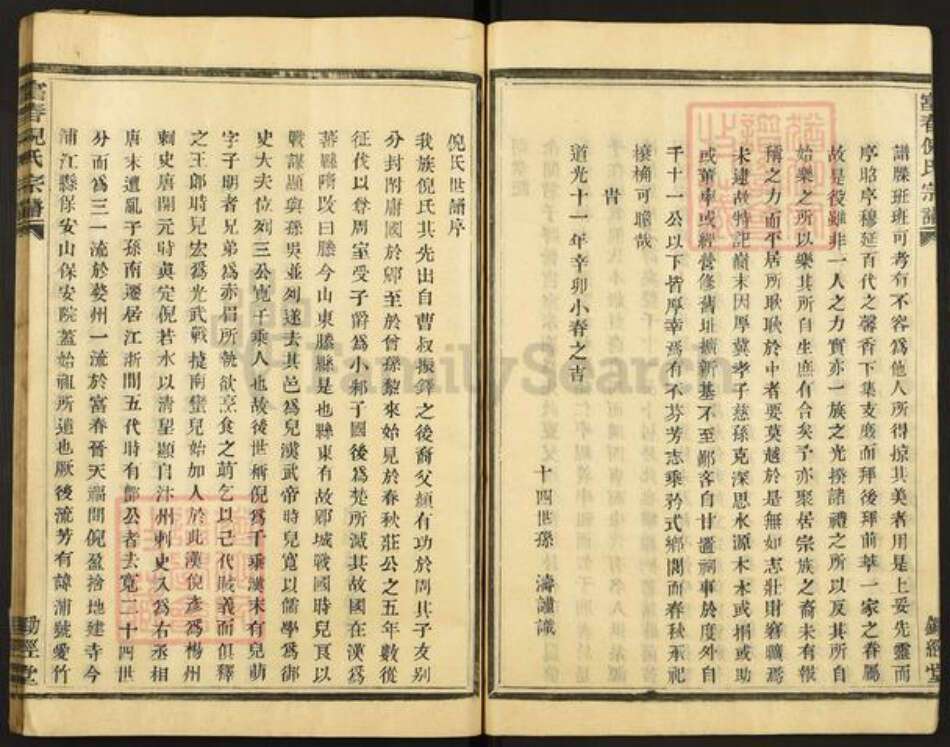 富春倪氏宗譜
譜牒班班可考有不容爲他人所得掠其美者用是上妥先靈而
序昭序穆延百代之馨香下集支庶而拜後拜前萃一家之眷屬
故是役雖非一人之力實亦一族之光揆諸禮之所以反其所自
始樂之所以樂其所自生庶有合矣予亦聚居宗族之裔未有報
稱之力而平居所耿耿於中者要莫越於是無如志壯財窘曠焉
未逮故特記嶺末因厚冀孝子慈孫克深思水源木本或捐或助
或董率或經營修舊址擴新基不至鄙吝自甘置祠事於度外自
千十一公以下皆厚幸焉有不芬芳志乘矜式鄉閭而春秋承祀
榱桷可瞻哉
旹
道光十一年辛卯小春之吉
十四世孫 濤謹識
倪氏世譜序
我族倪氏其先出自曹叔振鐸之後裔父顏有功於周其子友別
分封附庸國於郳至於曾孫黎來始見於春秋莊公之五年數從
征伐以尊周室受子爵爲小邾子國後爲楚所滅其故國在漢爲
蕃縣隋改曰滕今山東滕縣是也縣東有故郳城戰國時兒良以
戰謀顯與孫吳並列遂去其邑爲兒漢武帝時兒寬以儒學爲御
史大夫位列三公寬千乘人也故後世稱倪爲千乘漢末有兒萌
字子明者兄弟爲赤眉所執欲烹食之萌乞以己代賊義而俱釋
之王郎時兒宏爲光武戰撓南蠻兒始加人於此漢倪彥爲楊州
刺史唐開元時真定倪若水以清望顯自汴州刺史入爲右丞相
唐末遭亂子孫南遷居江浙間五代時有鄮公者去寬二十四世
分而爲三一流於婺州一流於富春晉天福間倪盈捨地建寺今
浦江縣保安山保安院蓋始祖所遺也厥後流芳有諱浦號愛竹
富春倪氏宗譜
勤經堂